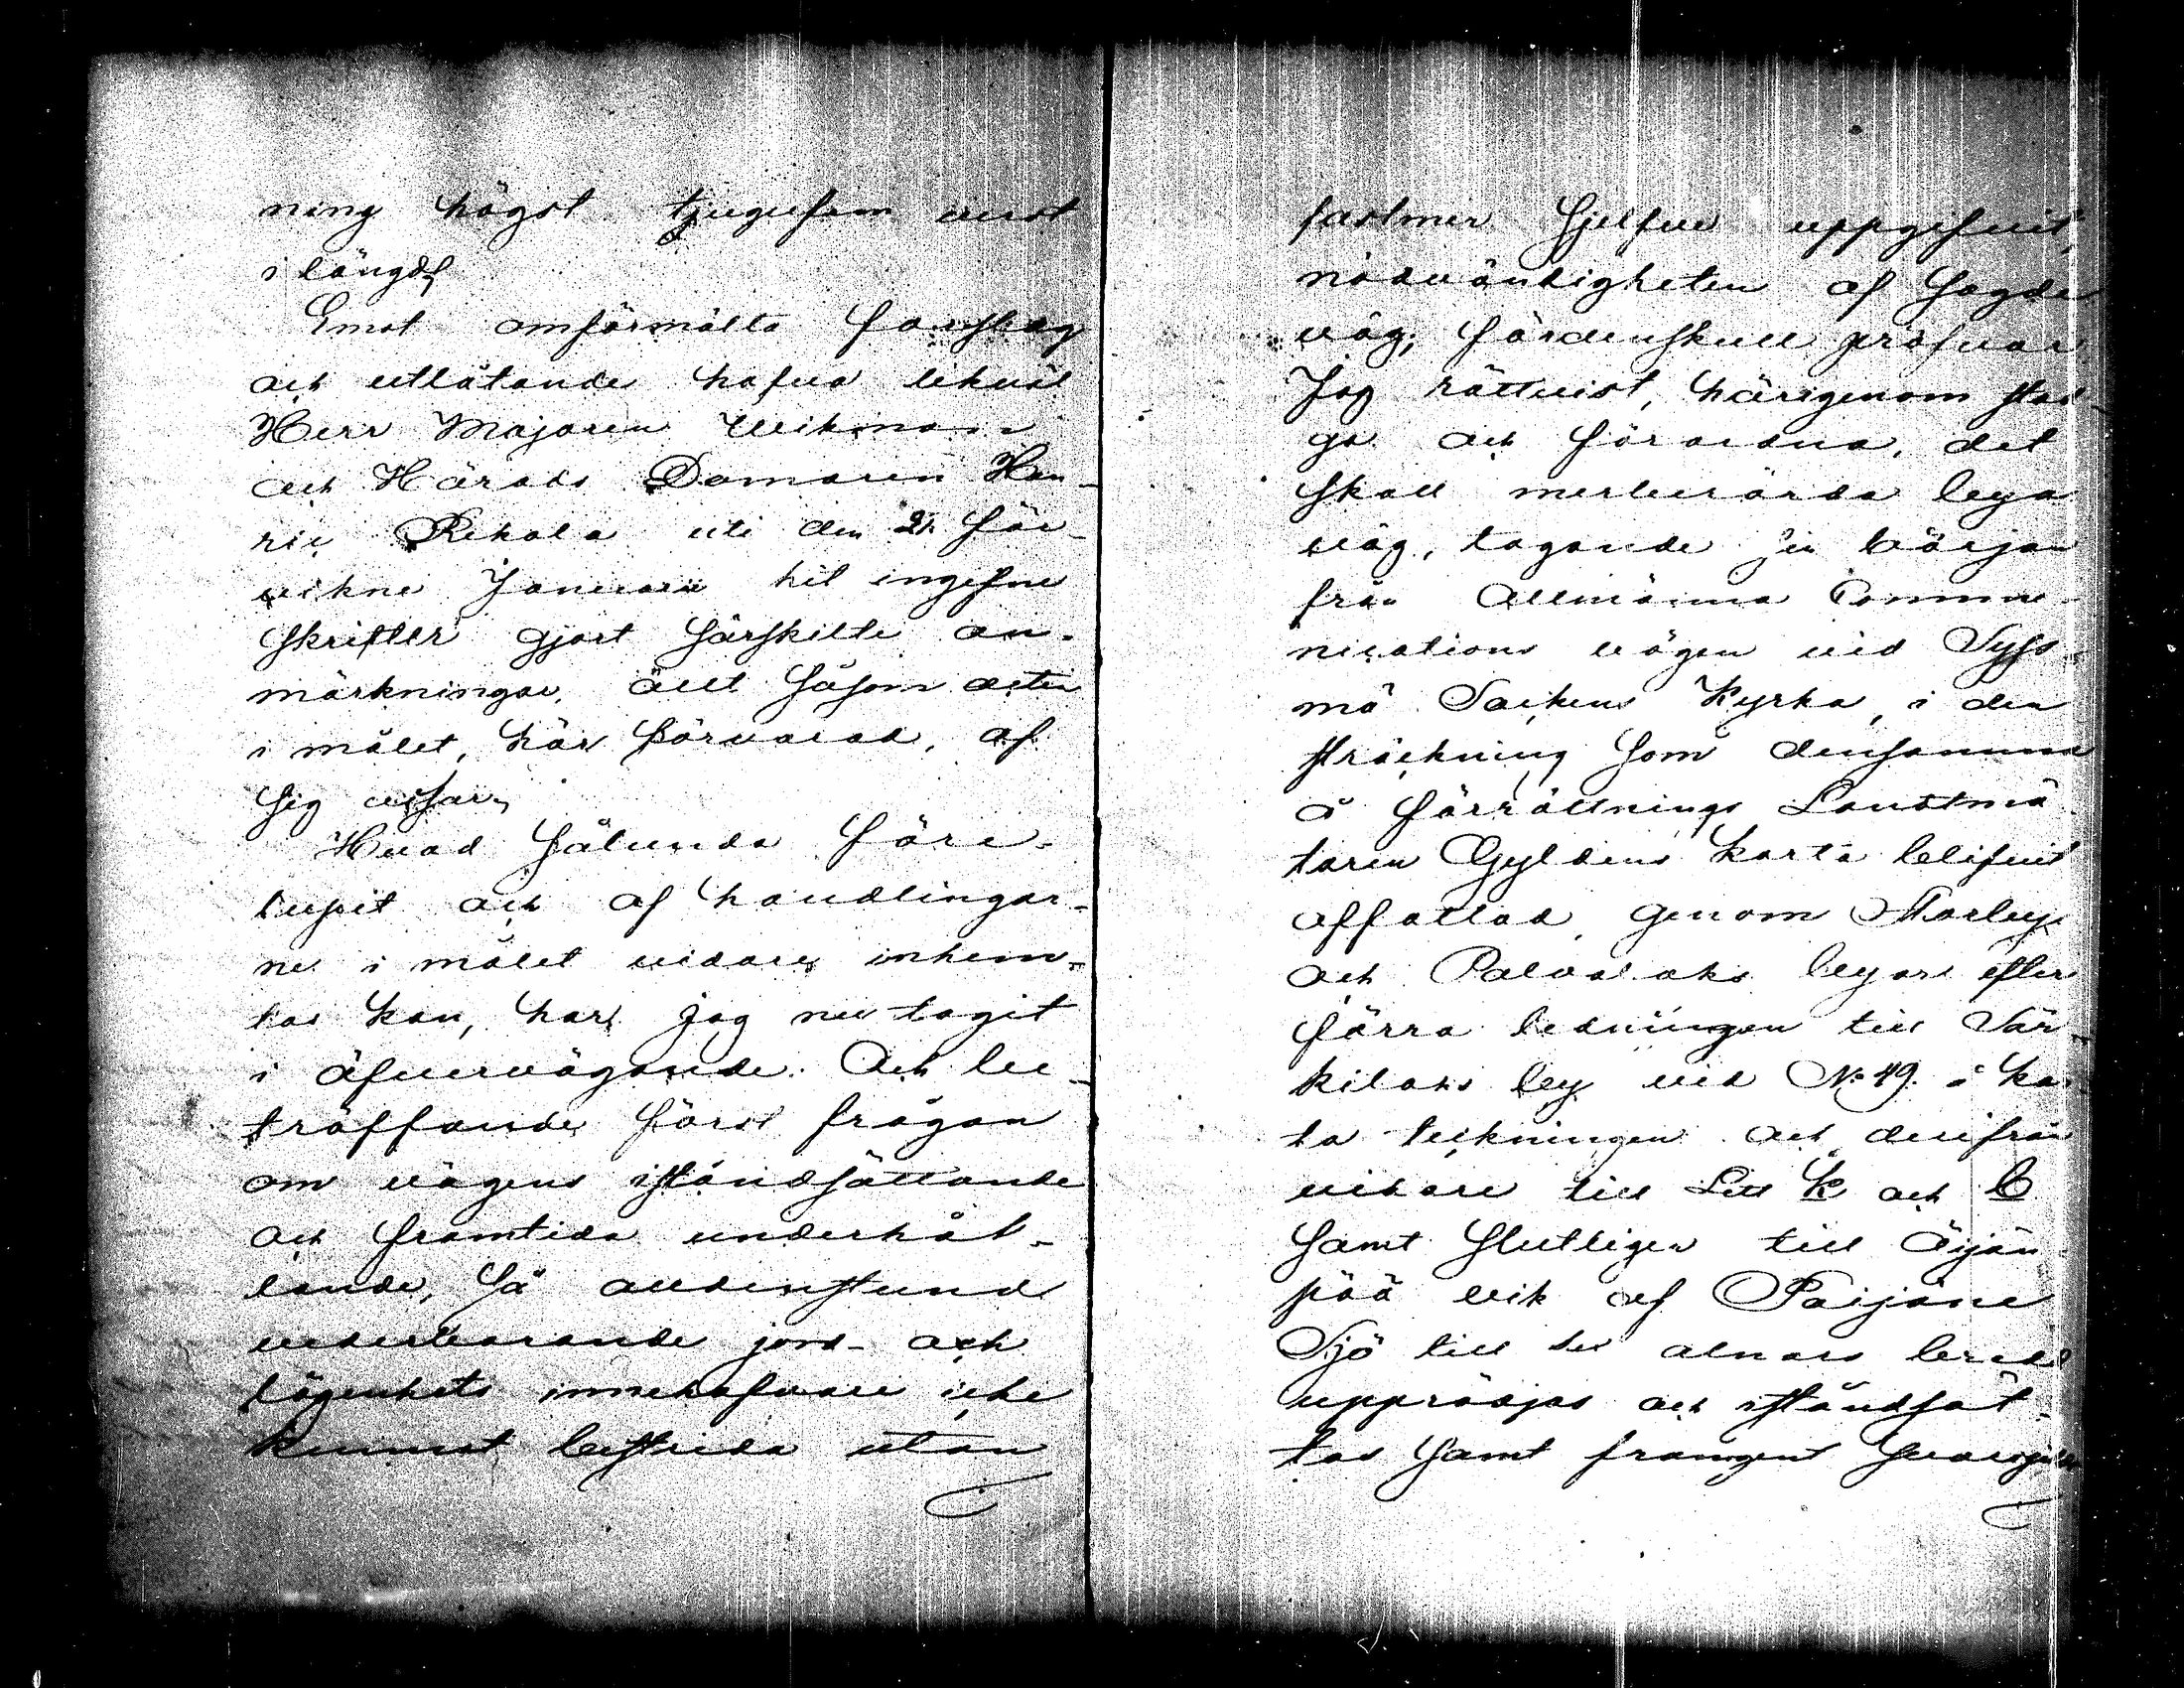 ning högst tjugufem verst
i längd.
Emot omförmälta förslag
och utlåtande hafva likväl
Herr Majoren Wikman
och Härads Domaren Hen-
ric Rekola uti den 21. för-
vikne Januarii hit ingifne
skrifter gjort särskilte an-
märkningar, allt såsom acten
i målet, här förvarad, af
sig visar.
Hvad sålunda före-
lupit och af handlingar-
ne i målet vidare inhem-
tas kan, har Jag nu tagit
i öfvervägande. Och be-
träffande först frågan
om vägens iståndsättande
och framtida underhål-
lande, så alldenstund
vederbörande jord- och
lägenhets innehafvare icke
kunnat bestrida utan
fastmer sjelfve uppgifvit,
nödvändigheten af sagde
väg; fördenskull pröfvar
Jag rättvist, härigenom stad-
ga och förordna, det
skall merberörda bya
väg, tagande sin början
från Allmänna Commu-
nications vägen vid Sys-
mä Sockens Kyrka, i den
sträckning som densamma
å förrättnings Landtmä
taren Gyldens karta blifvit
affattad, genom Storby
och Palvalaks byar efter
förra ledningen till Sär-
kilaks by vid No 49. å kar
ta teckningen och derifrån
vidare till Litt K och C
samt slutligen till Äijän
pää vik af Päijäne
Sjö till sex alnars bredd
upprödjas och iståndsät-
tas samt framgent